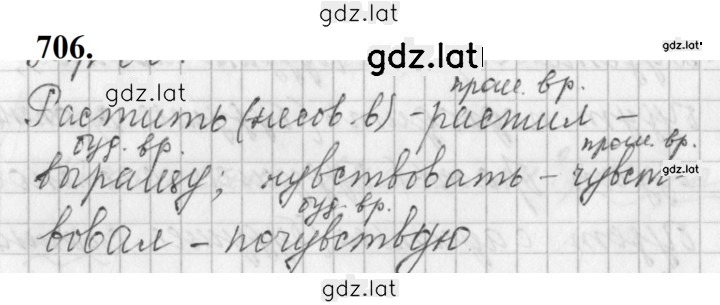 gdz.lat
706.
gdz.lat
gdz.lat
gdz.lat
прош. вр.
Растить (несов. в) - растил -
буд. вр.
прош. вр.
выращу; чувствовать - чувст-
gdz.lat
буд. вр.
вовал - почувствую.
gdz.lat